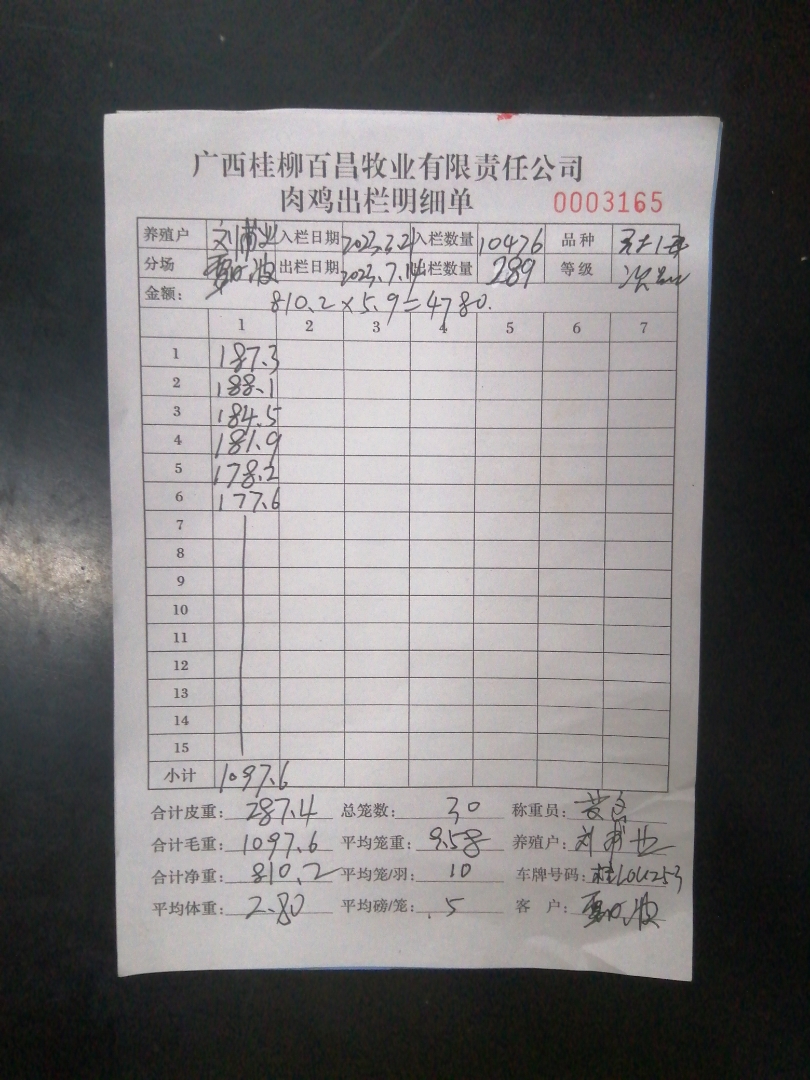 广西桂柳百昌牧业有限责任公司
肉鸡出栏明细单 0003165
养殖户 刘 业 入栏日期 2023.3.21 入栏数量 10476 品种
分场 波 出栏日期 2023.7.14 出栏数量 289 等级 次
金额: 810.2×5.9=4780.
1 2 3 4 5 6 7
1 187.3
2 188.1
3 184.5
4 181.9
5 178.2
6 177.6
7
8
9
10
11
12
13
14
15
小计 1097.6
合计皮重: 287.4 总笼数: 30 称重员:
合计毛重: 1097.6 平均笼重: 9.58 养殖户: 刘
合计净重: 810.2 平均笼/羽: 10 车牌号码:
平均体重: 2.80 平均磅/笼: 5 客户: 波